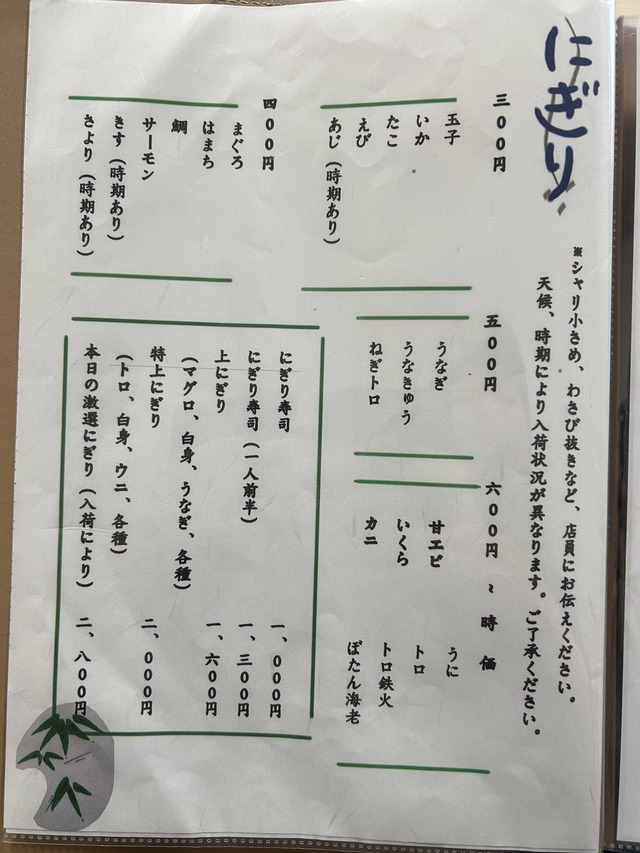 にぎり
※シャリ小さめ、わさび抜きなど、店員にお伝えください。
天候、時期により入荷状況が異なります。ご了承ください。
三００円
玉子
いか
たこ
えび
あじ（時期あり）
四００円
まぐろ
はまち
鯛
サーモン
きす（時期あり）
さより（時期あり）
五００円
うなぎ
うなきゅう
ねぎトロ
六００円 ~ 時価
甘エビ
いくら
カニ
うに
トロ
トロ鉄火
ぼたん海老
にぎり寿司 一、０００円
にぎり寿司（一人前半） 一、３００円
上にぎり 一、６００円
（マグロ、白身、うなぎ、各種）
特上にぎり 二、０００円
（トロ、白身、ウニ、各種）
本日の激選にぎり（入荷により） 二、八００円